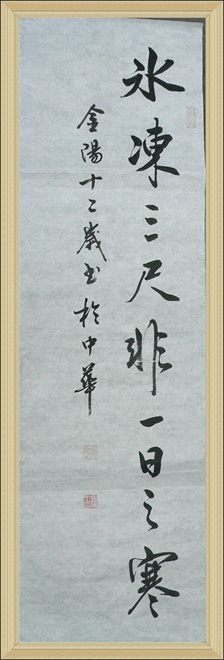 冰凍三尺非一日之寒
金陽十二歲書於中華